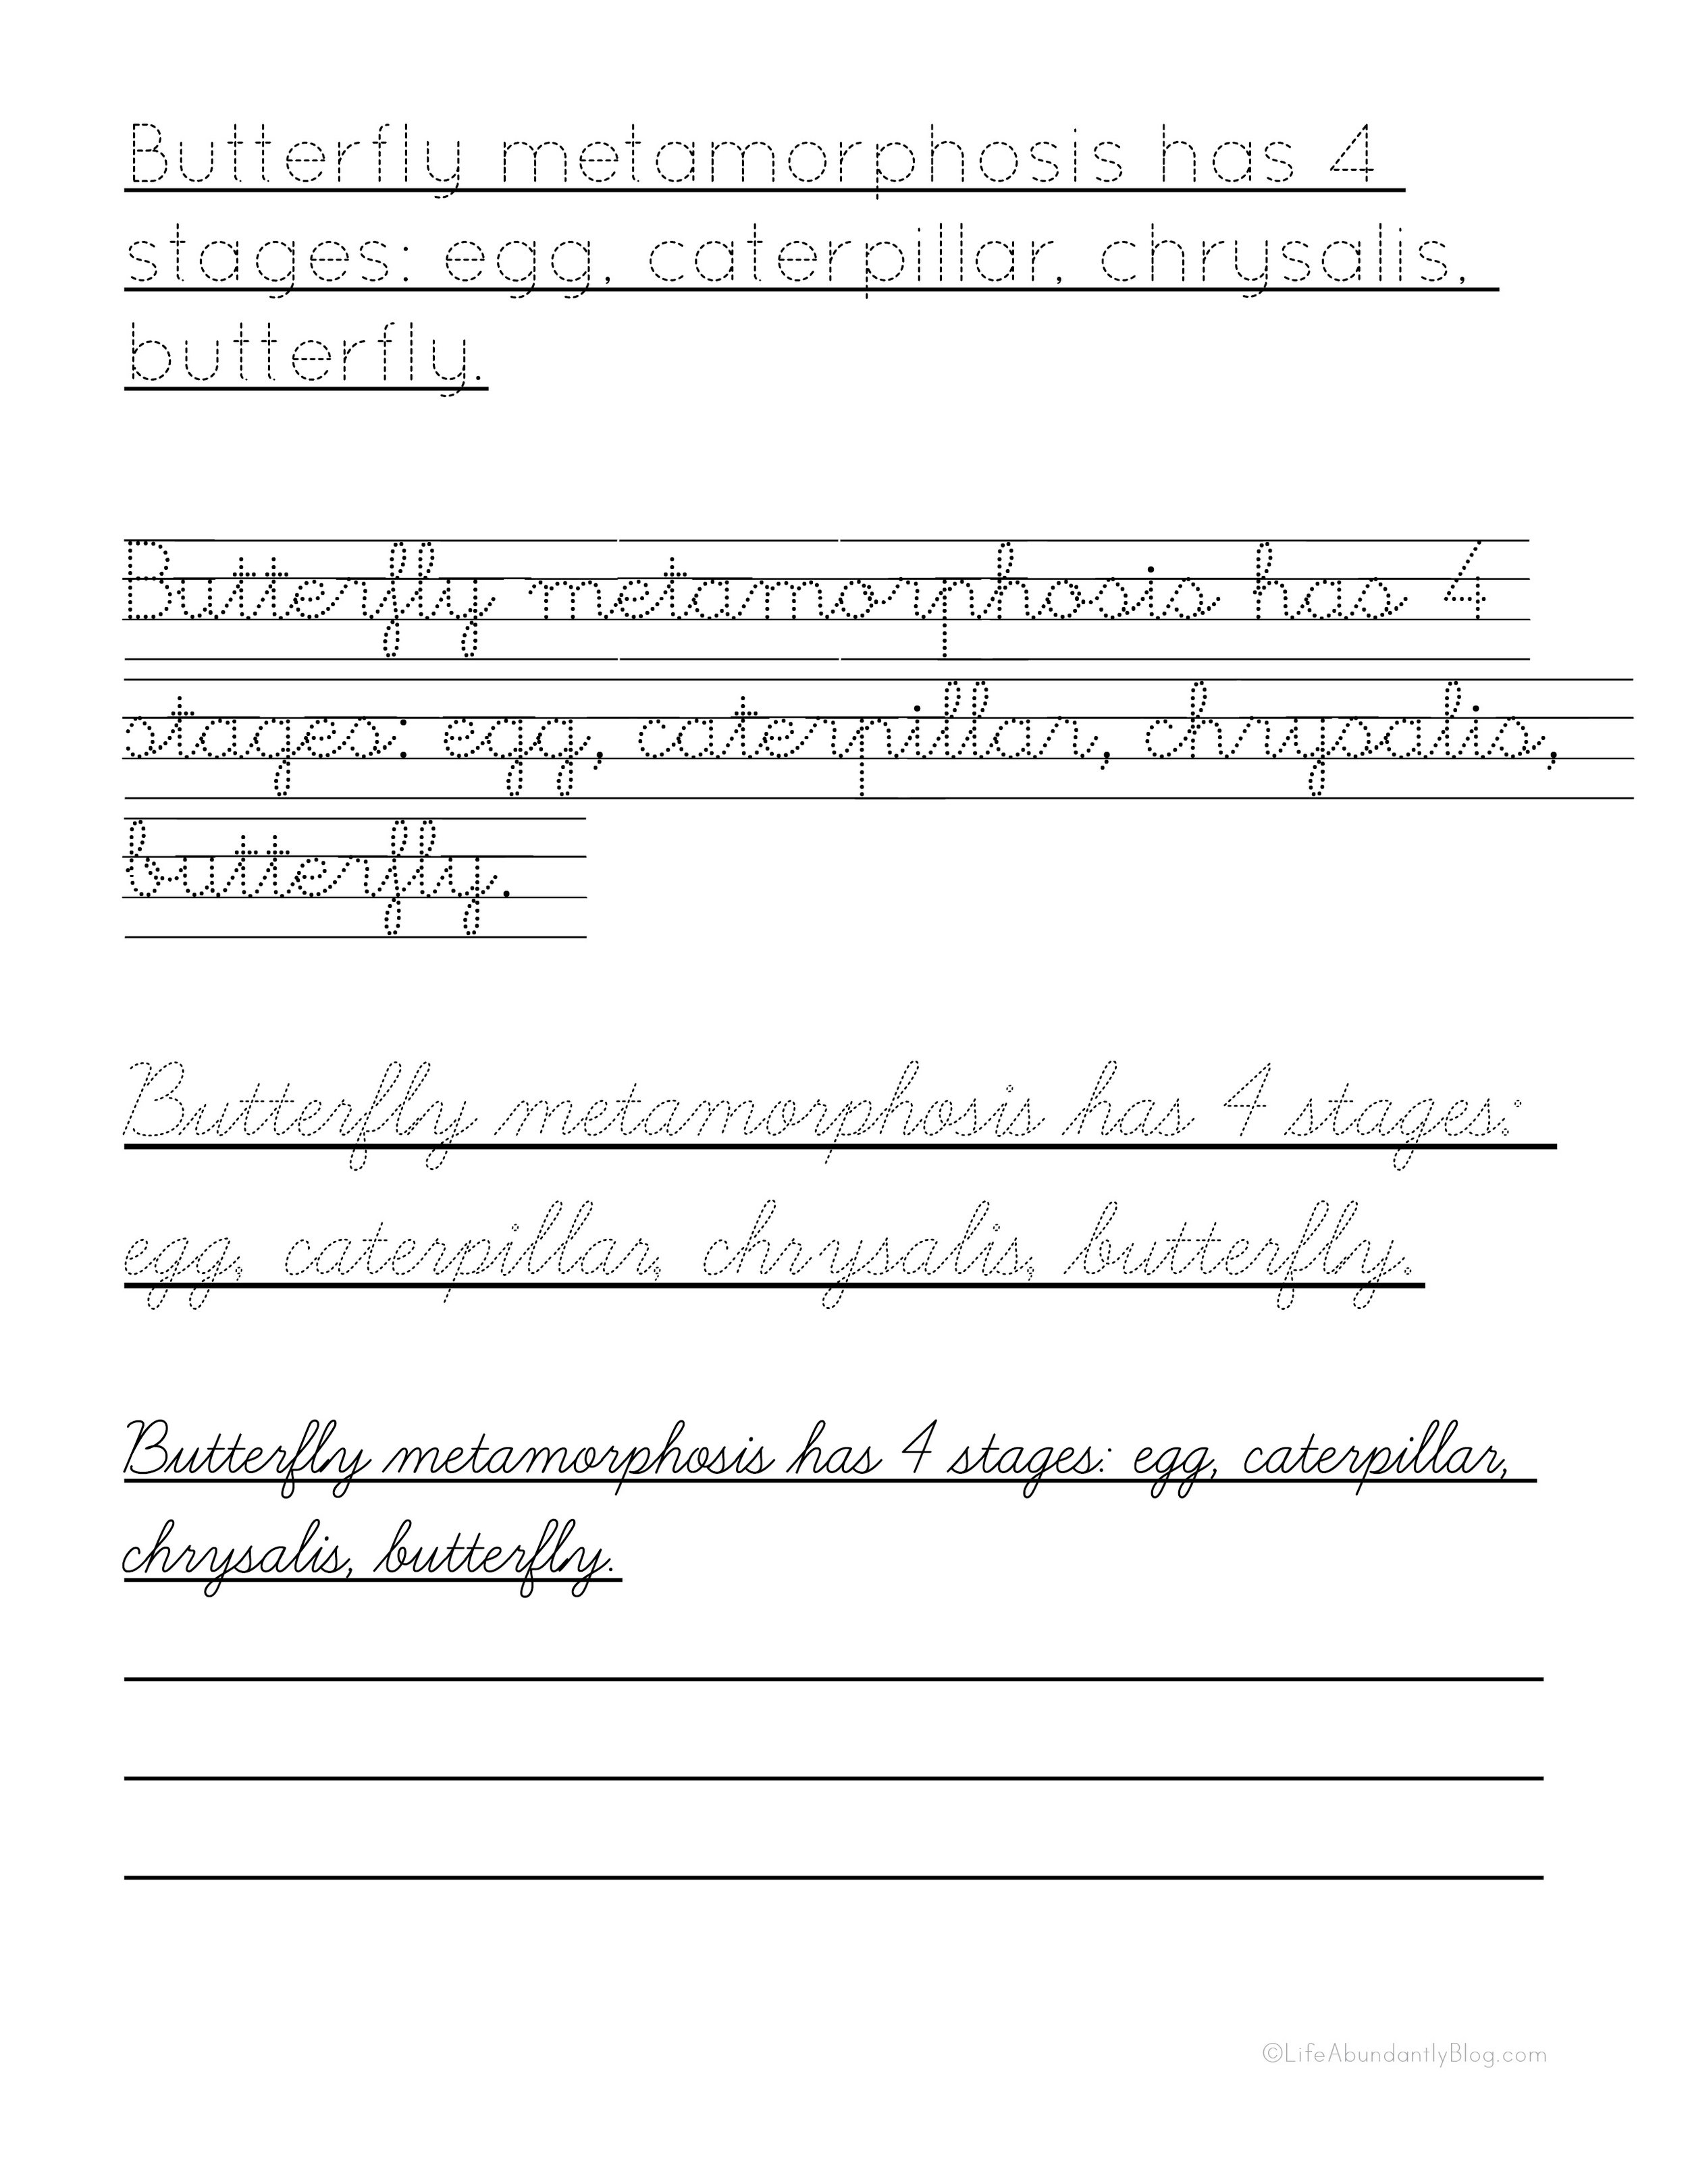 Butterfly metamorphosis has 4
stages: egg, caterpillar, chrysalis,
butterfly.
Butterfly metamorphosis has 4
stages: egg, caterpillar, chrysalis,
butterfly.
Butterfly metamorphosis has 4 stages:
egg, caterpillar, chrysalis, butterfly.
Butterfly metamorphosis has 4 stages: egg, caterpillar,
chrysalis, butterfly.
©LifeAbundantlyBlog.com